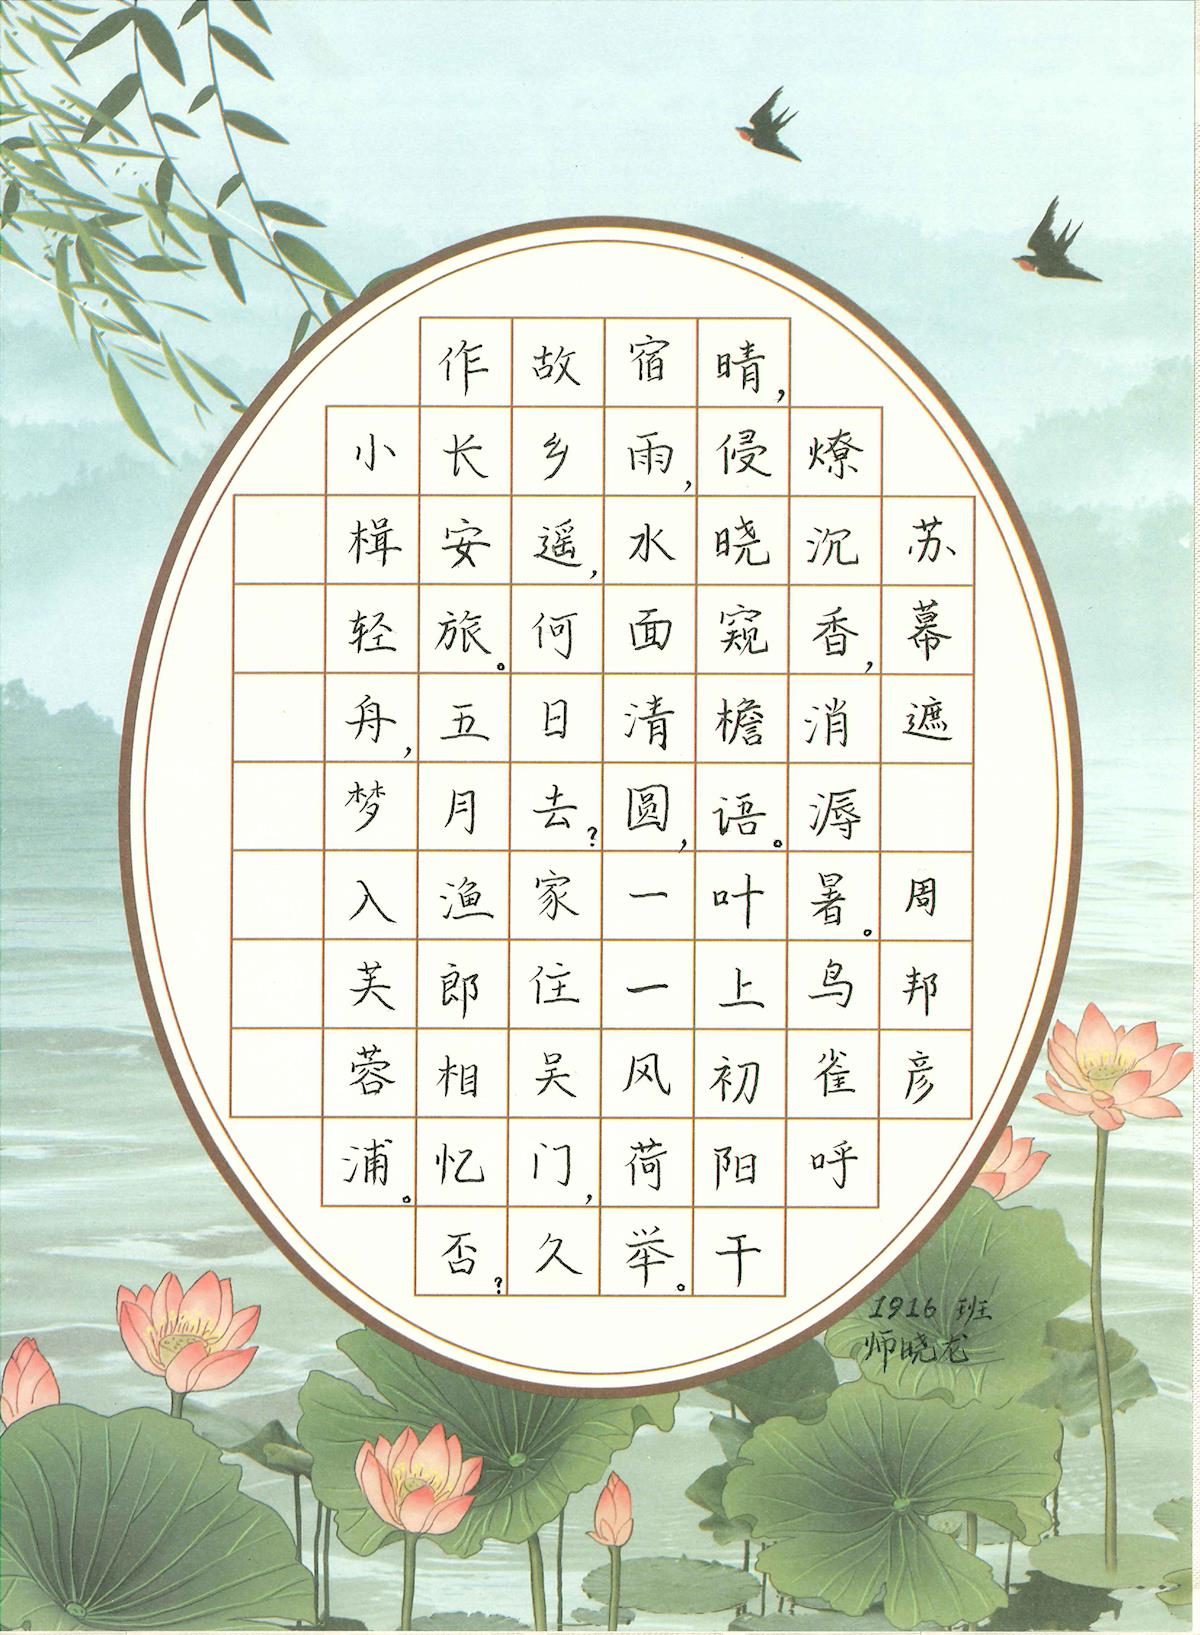 苏幕遮 周邦彦
燎沉香，消溽暑。鸟雀呼
晴，侵晓窥檐语。叶上初阳干
宿雨，水面清圆，一一风荷举。
故乡遥，何日去？家住吴门，久
作长安旅。五月渔郎相忆否？
小楫轻舟，梦入芙蓉浦。
1916 班
师晓龙